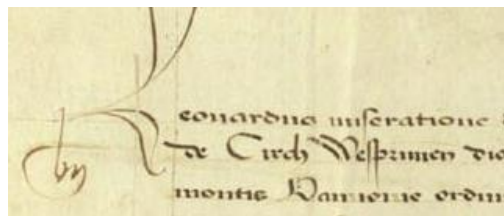 Leonardus miseratione
de Circh Wesprimien dio
montis Pannonie ordin